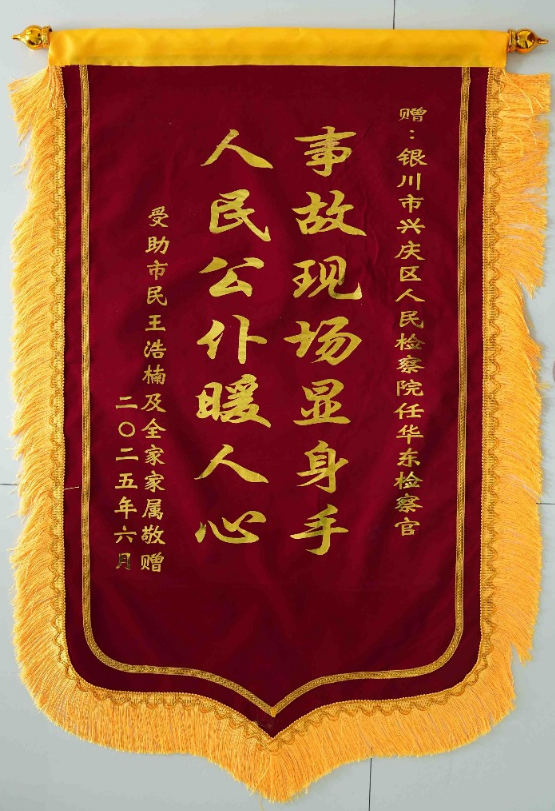 赠：银川市兴庆区人民检察院任华东检察官
事故现场显身手
人民公仆暖人心
受助市民王浩楠及全家家属敬赠
二〇二五年六月